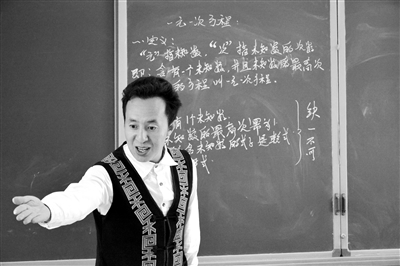 一元一次方程:
一.定义:
"元"指未知数,"次"指未知数的次数
即:含有一个未知数,并且未知数的最高次
的方程叫一元一次方程.
有1个未知数.
未知数的最高次幂为1
含未知数的式子是整式
式.
缺一不可